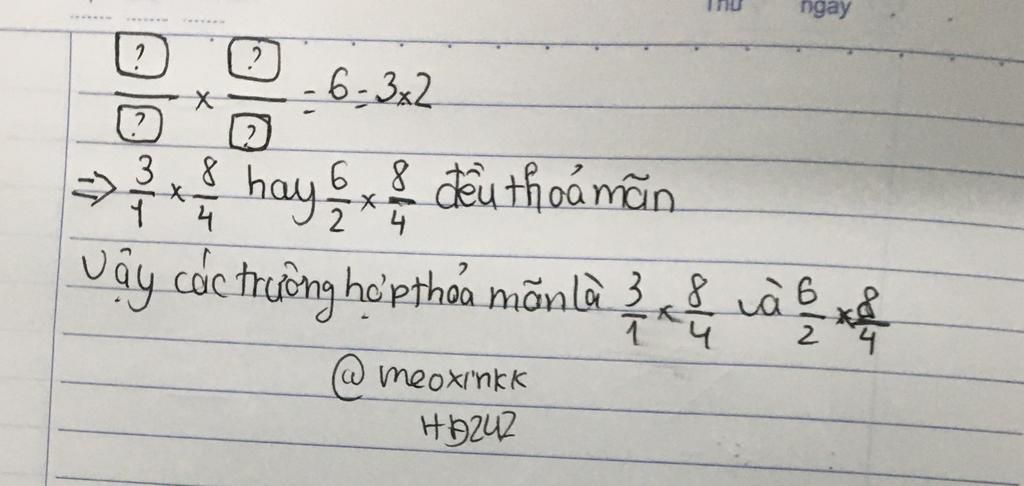 Thứ ngày
? / ? × ? / ? = 6 = 3×2
⇒ 3/1 × 8/4 hay 6/2 × 8/4 đều thoả mãn
Vậy các trường hợp thỏa mãn là 3/1 × 8/4 và 6/2 × 8/4
@meoxinkk
HĐ247